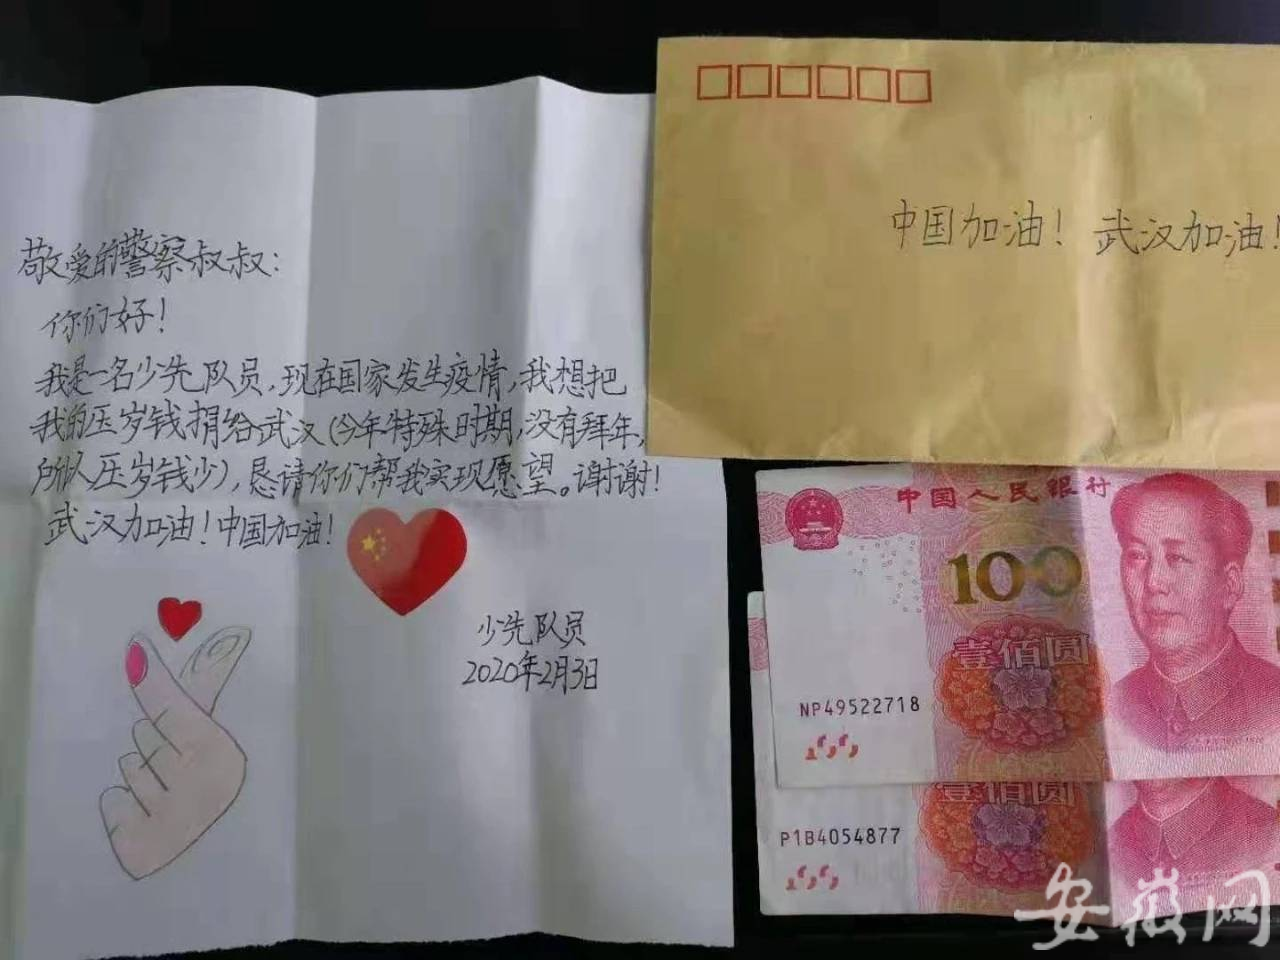 敬爱的警察叔叔：
你们好！
我是一名少先队员，现在国家发生疫情，我想把
我的压岁钱捐给武汉（今年特殊时期，没有拜年，
所以压岁钱少），恳请你们帮我实现愿望。谢谢！
武汉加油！中国加油！
少先队员
2020年2月3日
中国加油！武汉加油！
中国人民银行
100
壹佰圆
NP49522718
壹佰圆
P1B4054877
安徽网